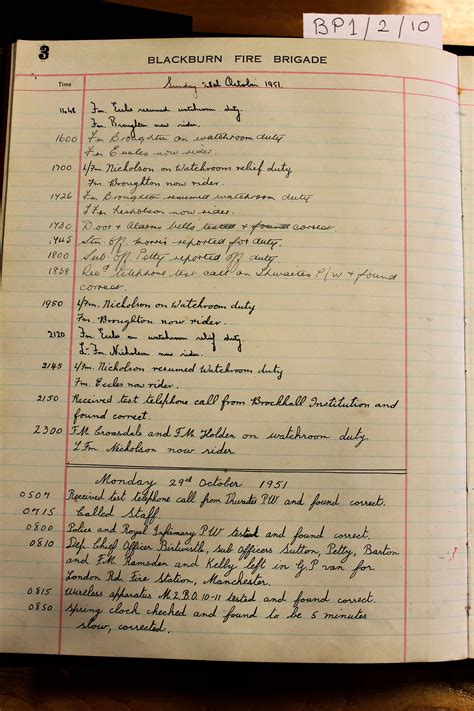 BP1/2/10
3
BLACKBURN FIRE BRIGADE
Time
Sunday 28th October 1951.
Fm. Eccles resumed watchroom duty.
Fm. Broughton now rider.
1600 Fm Broughton on watchroom duty
Fm Eccles now rider.
1700 L/Fm. Nicholson on Watchroom relief duty
Fm. Broughton now rider.
Fm Broughton resumed watchroom duty
L Fm Nicholson now rider.
1730 Door & Alarms bells tested & found correct.
Stn. Off. Morris reported for duty.
1800 Sub. Off Petty reported off duty.
1838 Rec'd telephone test call on Thwaites P/W & found
correct.
1950 L/Fm. Nicholson on Watchroom duty
Fm. Broughton now rider.
2120 Fm. Eccles on watchroom relief duty
L-Fm. Nicholson now rider.
2145 L/Fm. Nicholson resumed Watchroom duty
Fm. Eccles now rider.
2150 Received test telephone call from Brockhall Institution and
found correct.
2300 F.M. Croasdale and F.M. Holden on watchroom duty.
L Fm. Nicholson now rider.
Monday 29th October 1951
0507 Received test telephone call from Thwaites P.W and found correct.
0715 Called Staff.
0800 Police and Royal Infirmary P.W tested and found correct.
0810 Dep. Chief Officer Birtwistle, Sub Officers Sutton, Petty, Barton
and F.M. Ramsden and Kelly left in G.P van for
London Rd. Fire Station, Manchester.
0815 Wireless apparatus M.2.B.D. 10-11 tested and found correct.
0850 Spring clock checked and found to be 5 minutes
slow, corrected.